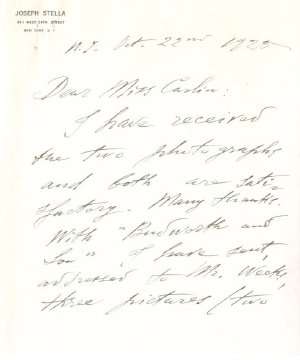 JOSEPH STELLA
451 WEST 24TH STREET
NEW YORK, N.Y.
N.Y. Oct. 22nd 1925
Dear Miss Carlin:
I have received
the two photographs
and both are satis-
factory. Many thanks.
With "Budworth and
Son" I have sent,
addressed to Mr. Weeks,
three pictures (two